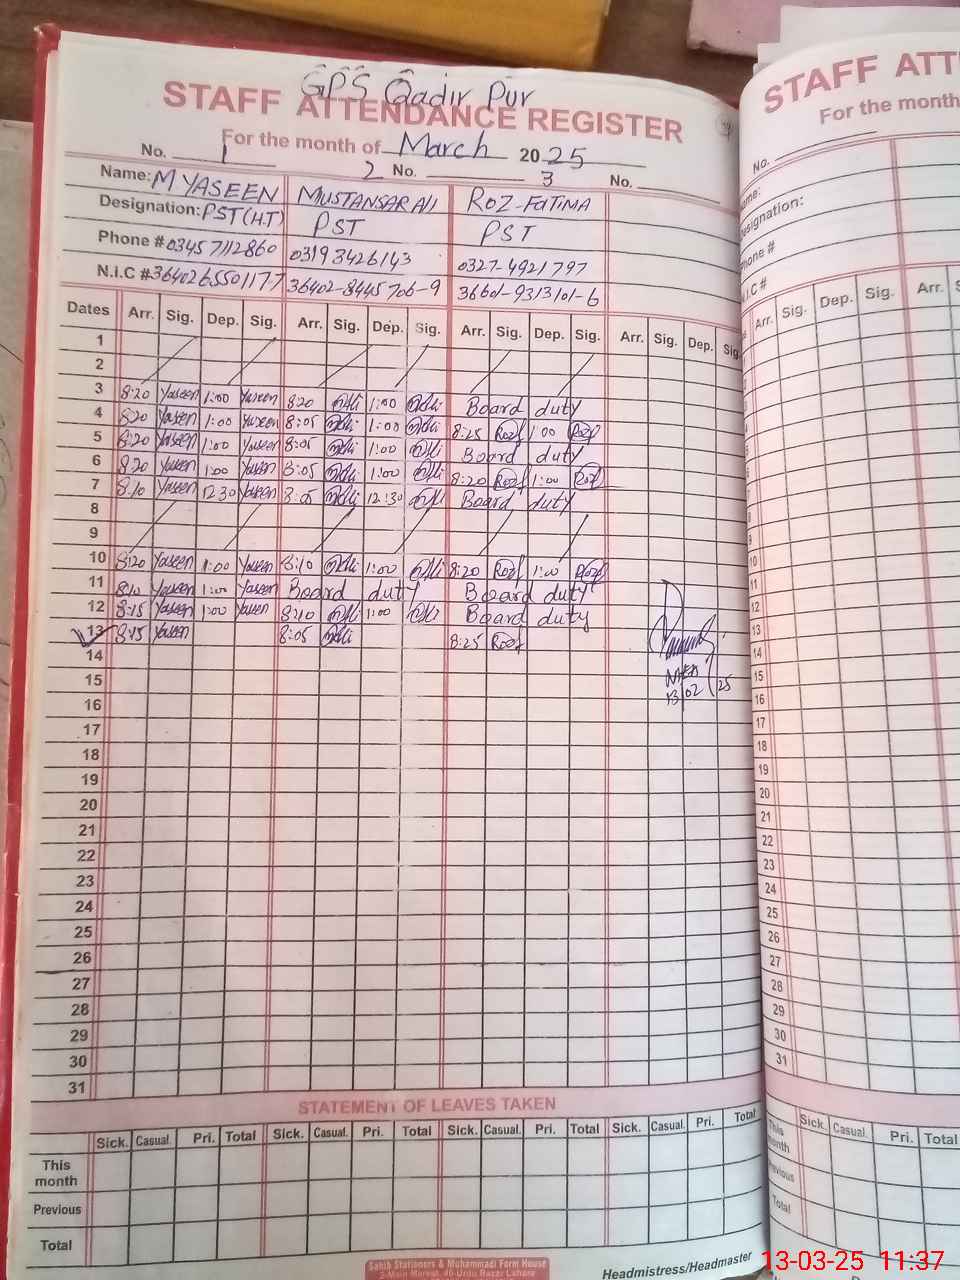 GPS Qadir Pur
STAFF ATTENDANCE REGISTER
For the month of March 2025
No. 1 2 No. 3 No.
Name: M YASEEN MUSTANSAR ALI ROZ-FATIMA
Designation: PST (H.T) PST PST
Phone # 03457112860 03193426143 0327-4921797
N.I.C # 3640265501177 36402-8445706-9 36601-9313101-6
Dates Arr. Sig. Dep. Sig. Arr. Sig. Dep. Sig. Arr. Sig. Dep. Sig. Arr. Sig. Dep. Sig.
1
2
3 8:20 Yaseen 1:00 Yaseen 8:20 1:00 Board duty
4 8:20 Yaseen 1:00 Yaseen 8:05 1:00 8:25 Roz 1:00 Roz
5 8:20 Yaseen 1:00 Yaseen 8:05 1:00 Board duty
6 8:20 Yaseen 1:00 Yaseen 8:05 1:00 8:20 Roz 1:00 Roz
7 8:10 Yaseen 12:30 Yaseen 8:05 12:30 Board duty
8
9
10 8:20 Yaseen 1:00 Yaseen 8:10 1:00 8:20 Roz 1:00 Roz
11 8:10 Yaseen 1:00 Yaseen Board duty Board duty
12 8:15 Yaseen 1:00 Yaseen 8:10 1:00 Board duty
13 8:15 Yaseen 8:05 8:25 Roz
14
15
16 13/02/25
17
18
19
20
21
22
23
24
25
26
27
28
29
30
31
STATEMENT OF LEAVES TAKEN
Sick. Casual. Pri. Total Sick. Casual. Pri. Total Sick. Casual. Pri. Total Sick. Casual. Pri. Total
This month
Previous
Total
Sakib Stationers & Muhammadi Form House
Headmistress/Headmaster
STAFF ATT
For the month
No.
Designation:
Phone #
N.I.C #
Arr. Sig. Dep. Sig. Arr.
10
11
12
13
14
15
16
17
18
19
20
21
22
23
24
25
26
27
28
29
30
31
Sick. Casual. Pri. Total
This month
Previous
Total
13-03-25 11:37